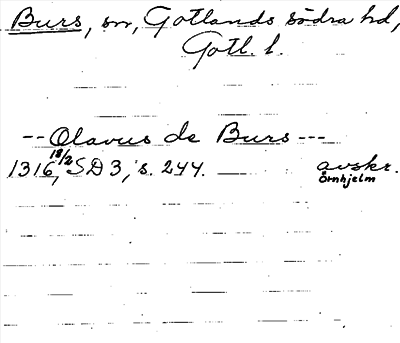 Burs, sn, Gotlands södra hd,
Gotl. l.
-- Olavus de Burs ---
1316 18/2, SD 3, s. 244. — avskr.
Örnhjelm